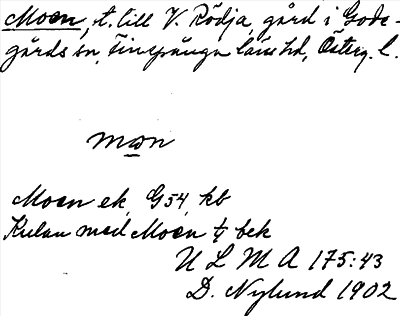 Moen, t. till V. Rödja, gård i Gode-
gårds sn, Finspånga läns hd, Österg. l.
moen
Moen ek G54, kb
Kulan med Moen ½ bek
U L M A 175:43
D. Nylund 1902